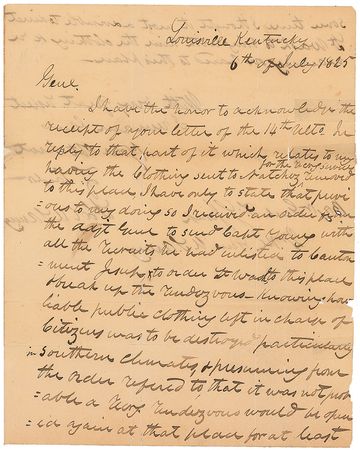 Louisville Kentucky
6th of July 1825
Genl.
I have the honor to acknowledge the
receipt of your letter of the 14th Ulto. In
reply to that part of it which relates to my
for the
having the Clothing sent to Natchez removed
to this place, I have only to state that previ
=ous to my doing so I received an order
the adjt Genl to send Capt Young with
all the recruits he had enlisted to Canton
=ment Jesup & to order to this place
& break up the rendezvous. Knowing how
liable public clothing left in charge of
Citizens was to be destroyed particularly
in Southern Climates, & presuming from
the order refered to that it was not prob
=able a rendezvous would be open
=ed again at that place for at least